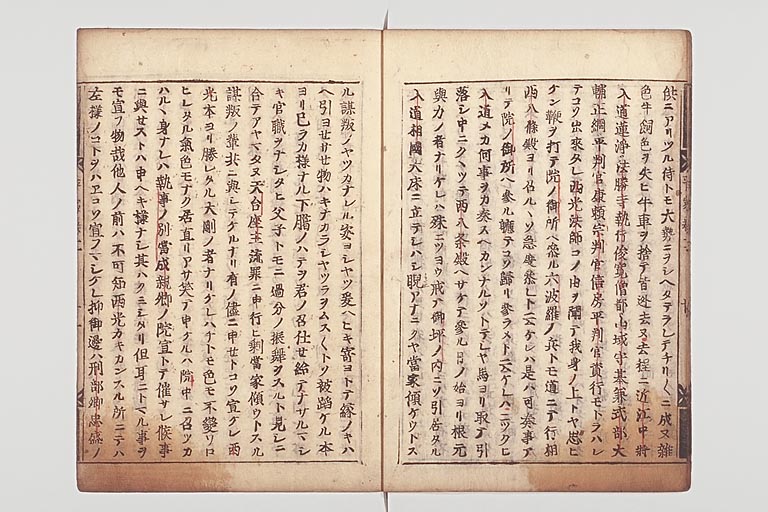 供ニアリツル侍トモ大勢ニヲシヘタテラレテチリ〱ニ成ヌ雑
色牛飼色ヲ失ヒ牛車ヲ捨テ皆迯去ヌ去程ニ近江中将
入道蓮浄法勝寺執行俊寛僧都山城守基兼式部大
輔正綱平判官康頼宗判官信房平判官資行モトラハレ
テコソ出来タレ西光法師コノ由ヲ聞テ我身ノ上トヤ思ヒ
ケン鞭ヲ打テ院ノ御所ヘ参ル六波羅ノ兵トモ道ニテ行相
西八條殿ヨリ召ルヽソ急度参レト云ケレハ是ハ可奏事ア
リテ院ノ御所ヘ参ル軈テコソ歸リ参ラメト云ケレハニツクヒ
入道メカ何事ヲカ奏スヘカンナルソトテシヤ馬ヨリ取テ引
落シ中ニクヽツテ西八条殿ヘサケテ参ル日ノ始ヨリ根元
與力ノ者ナリケレハ殊ニツヨウ戒テ御坪ノ内ニソ引居タル
入道相國大床ニ立テシハシ睨アナニクヤ當家傾ケウトスル
ル謀叛ノヤツカナレル姿ヨシヤツ爰ヘヒキ寄ヨトテ縁ノキハ
ヘ引ヨセサセ物ハキナカラシヤツラヲムスムストソ被蹈ケル本
ヨリ己ラカ様ナル下臈ノハテヲ君ノ召仕セ給テナサルマシ
キ官職ヲナシタヒ父子トモニ過分ノ振舞ヲスルト見シニ
合テアヤマタヌ天台座主流罪ニ申行ヒ剰當家傾ウトスル
謀叛ノ輩ニ與シテケルナリ有ノ儘ニ申セトコソ宣ケレ西
光本ヨリ勝レタル大剛ノ者ナリケレハチトモ色モ不變ワロ
ヒレタル氣色モナク居直リアサ笑テ申ケルハ院中ニ召ツカ
ハルヽ身ナレハ執事ノ別當成親卿ノ院宣トテ催サレ候事
ニ與セストハ申ヘキ様ナシ其ハクミシタリ但耳ニトマル事ヲ
モ宣フ物哉他人ノ前ハ不可知西光カキカンスル所ニテハ
左様ノコトヲハエコソ宣フマシケレ抑御邊ハ刑部卿忠盛ノ